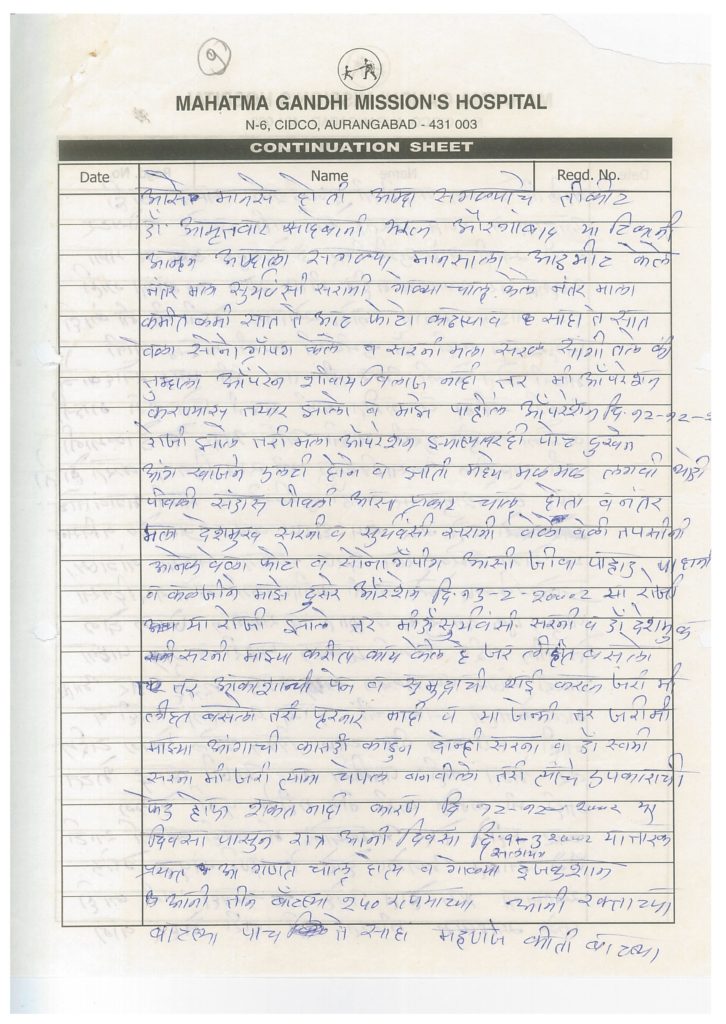 9
MAHATMA GANDHI MISSION'S HOSPITAL
N-6, CIDCO, AURANGABAD - 431 003
CONTINUATION SHEET
Date Name Regd. No.
मानसे होती सगळ्याचे तीकीट
डॉ अमृतवार साहेबानी औरंगाबाद या ठिकानी
आनुन आम्हाला सगळ्या मानसाला अॅडमीट केले
नंतर मला सुर्यवंसी सरानी गोळ्या चालू केले नंतर माला
कमीत कमी सात ते आट फोटो काढण्याव साहा ते सात
वेळा सोनोग्रॉपग केले व सरनी मला सरळ सांगीतले की
तुम्हाला ऑपरेन शीवाय विलाज नाही तर मी ऑपरेशन
करण्यास तयार झालो व माझे पाहीले ऑपरेशन दि.१२-१२-२
रोजी झाले तरी मला ऑपरेशन झाल्यावरही पोट दुखने
आंग खाजने उलटी होने व छाती मध्ये मळमळ लगवी
पीवळी संडास पीवळी आसा प्रकार चालू होता व नंतर
मला देशमुख सरनी व सुर्यवंसी सरानी वेळो वेळी तपासीनी
आनेक वेळा फोटो व सोनोग्रॉपीग आसी जीवा पाहाड
व काळजीने माझे दुसरे ऑपरेशन दि.१३-२-२००२ या रोजी
या रोजी झाले तर मी डॉ सुर्यवंसी सरनी व डॉ देशमुक
सरनी माझ्या करीता काय केले हे जर लीहीत बसलो
तर आकाशाची पेन व समुद्राची शाई करुन जरी मी
लीहत बसलो तरी पुरनार नाही व या जन्मी तर जरी मी
माझ्या आंगाची कातडी काडुन दोन्ही सरना व डॉ स्वामी
सरना मी जरी त्याना चपल बनवीले तरी त्यांचे उपकाराची
फेड होऊ शकत नाही कारण दि १२-१२-२००२ या
दिवसा पासुन रात्र आनी दिवसा दि.१-३ २००२ या तारक
प्रयन्त चालू होत्य व गोळ्या इजकशान
आनी तीन बॉटल्या २५० रुपयाच्या आनी रक्ताच्या
बाटल्या पाच ते साहा म्हणजे कीती बाटल्या